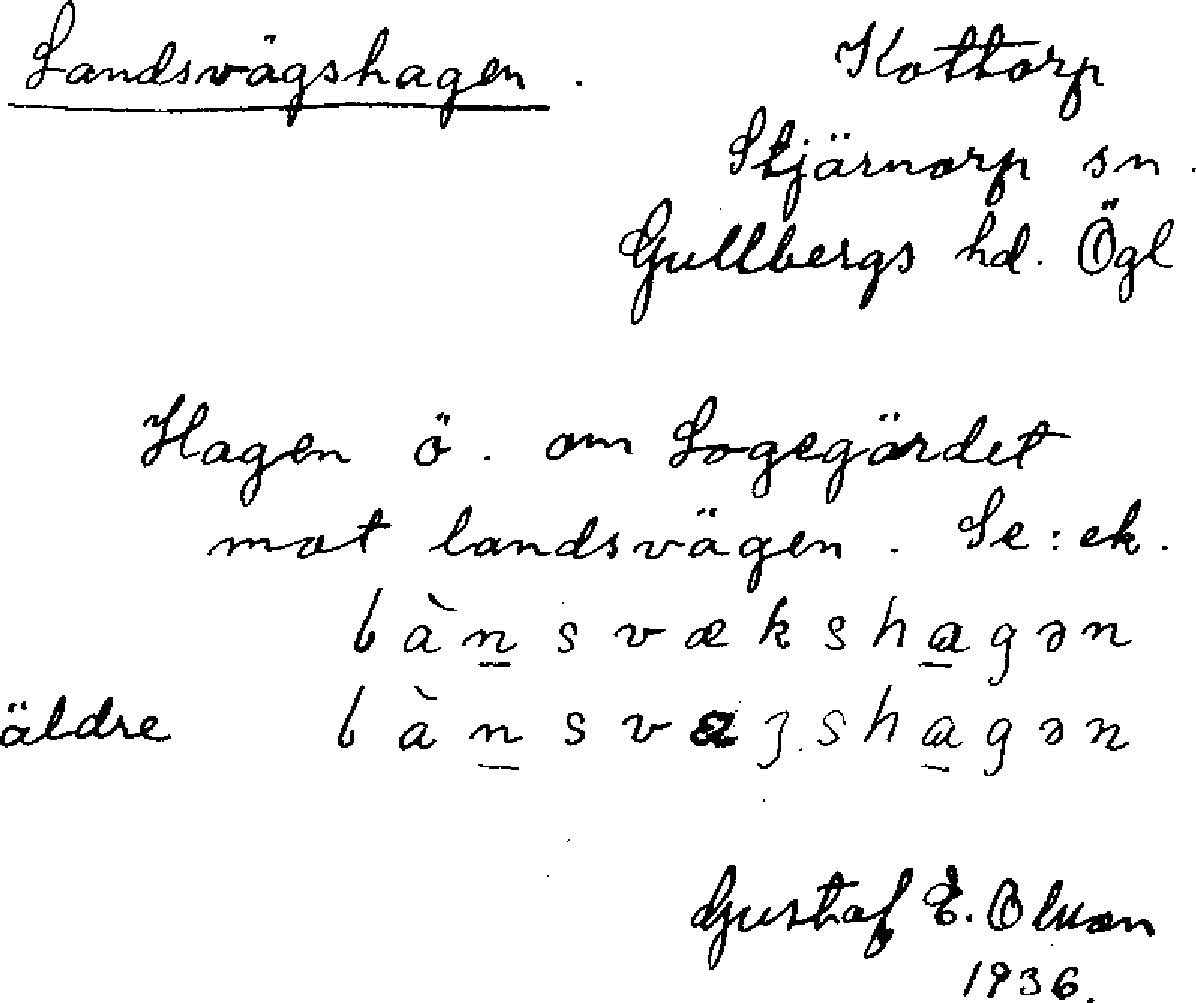 Landsvägshagen. Kottorp
Stjärnorp sn.
Gullbergs hd. Ögl
Hagen ö. om Logegärdet
mot landsvägen. Se: ek.
lànsvækshagən
äldre lànsvæʒshagən
Gustaf E. Olsson
1936.